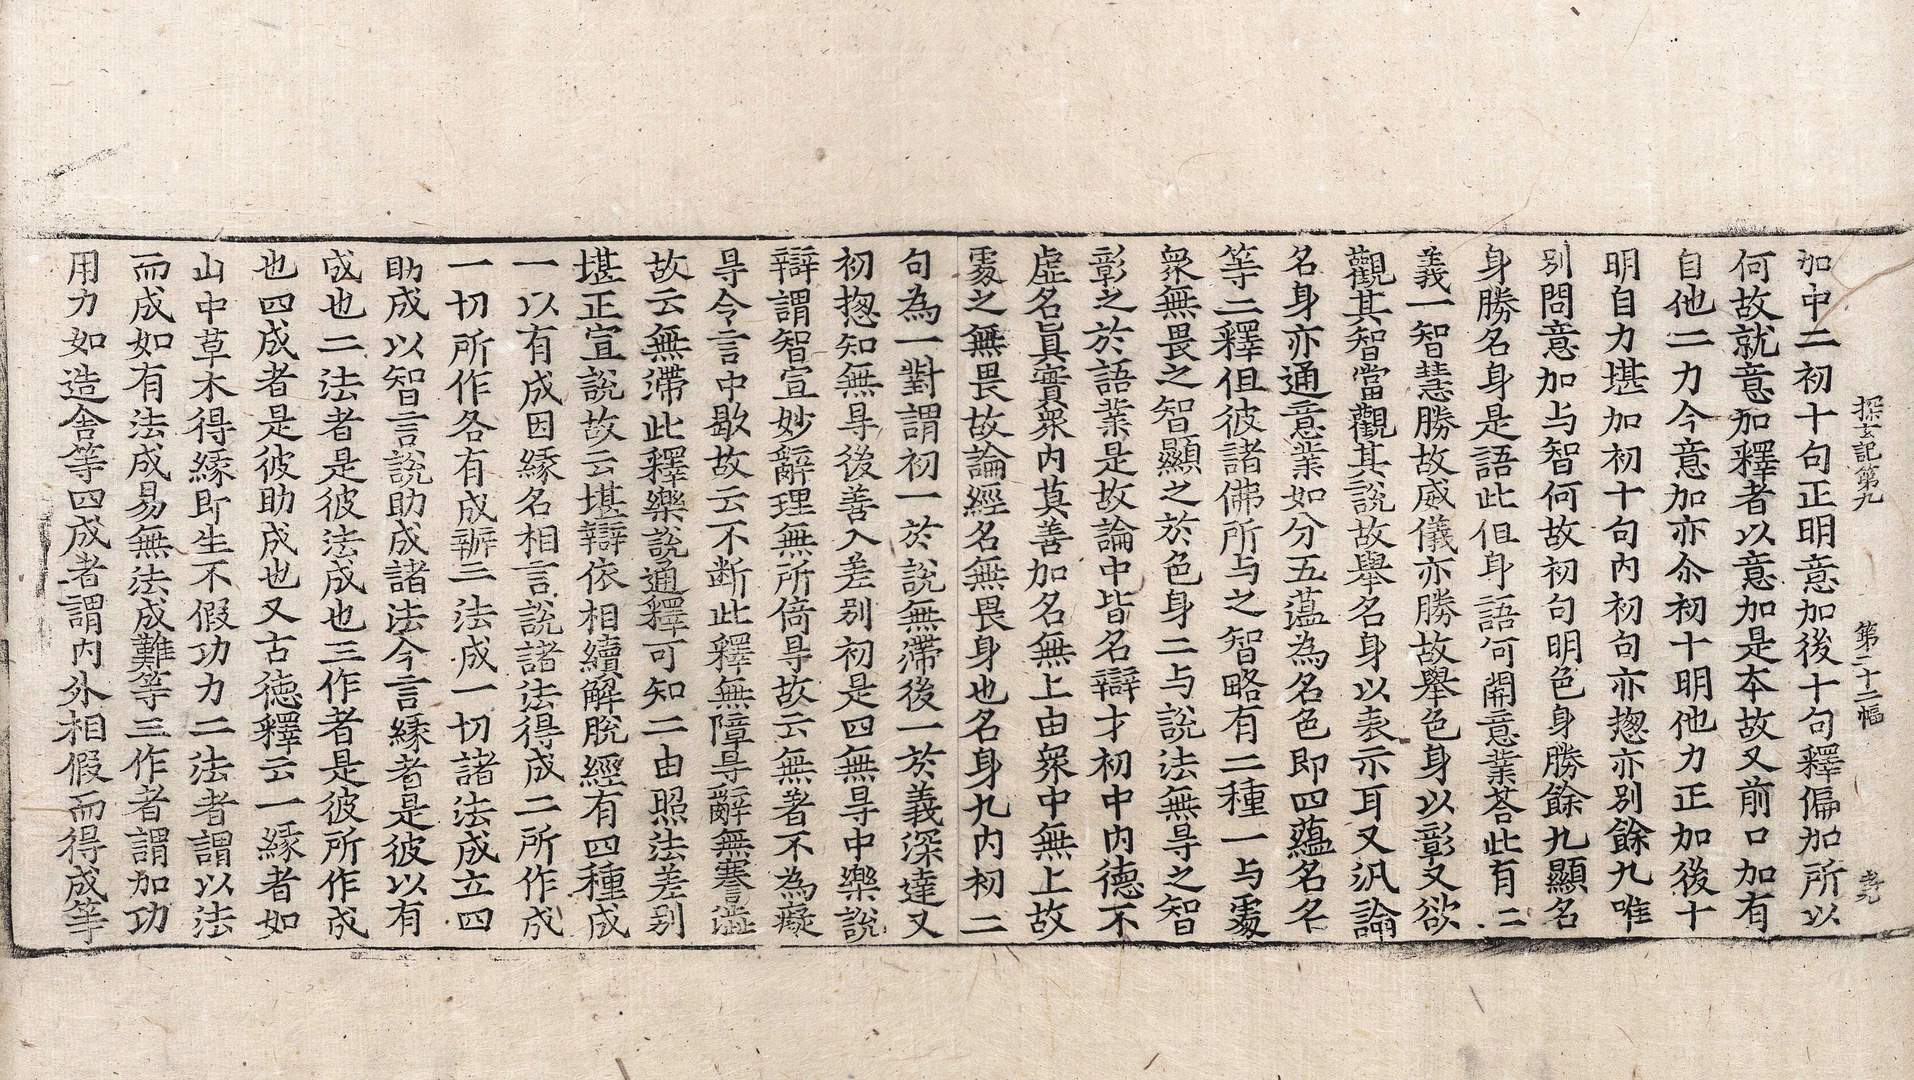 探玄記第九　第二十二幅　孝元
加中二初十句正明意加後十句釋偏加所以
何故就意加釋者以意加是本故又前口加有
自他二力今意加亦尒初十明他力正加後十
明自力堪加初十句内初句亦揔亦别餘九唯
别問意加与智何故初句明色身勝餘九顯名
身勝名身是語此但身語何開意業荅此有二
義一智慧勝故威儀亦勝故舉色身以彰又欲
觀其智當觀其說故舉名身以表示耳又汎論
名身亦通意業如分五藴為名色即四藴名名
等二釋但彼諸佛所与之智略有二種一与䖏
衆無畏之智顯之於色身二与說法無㝵之智
彰之於語業是故論中皆名辯才初中内德不
虚名真實衆内莫善加名無上由衆中無上故
䖏之無畏故論經名無畏身也名身九内初二
句為一對謂初一於說無滯後一於義深達又
初揔知無㝵後善入差别初是四無㝵中樂說
辯謂智宣妙辭理無所倚㝵故云無著不為癡
㝵令言中歇故云不断此釋無障㝵辭無謇澁
故云無滯此釋樂說通釋可知二由照法差别
堪正宣說故云堪辯依相續解脫經有四種成
一以有成因縁名相言說諸法得成二所作成
一切所作各有成辦三法成一切諸法成立四
助成以智言說助成諸法今言縁者是彼以有
成也二法者是彼法成也三作者是彼所作成
也四成者是彼助成也又古德釋云一縁者如
山中草木得縁即生不假功力二法者謂以法
而成如有法成易無法成難等三作者謂加功
用力如造舍等四成者謂内外相假而得成等